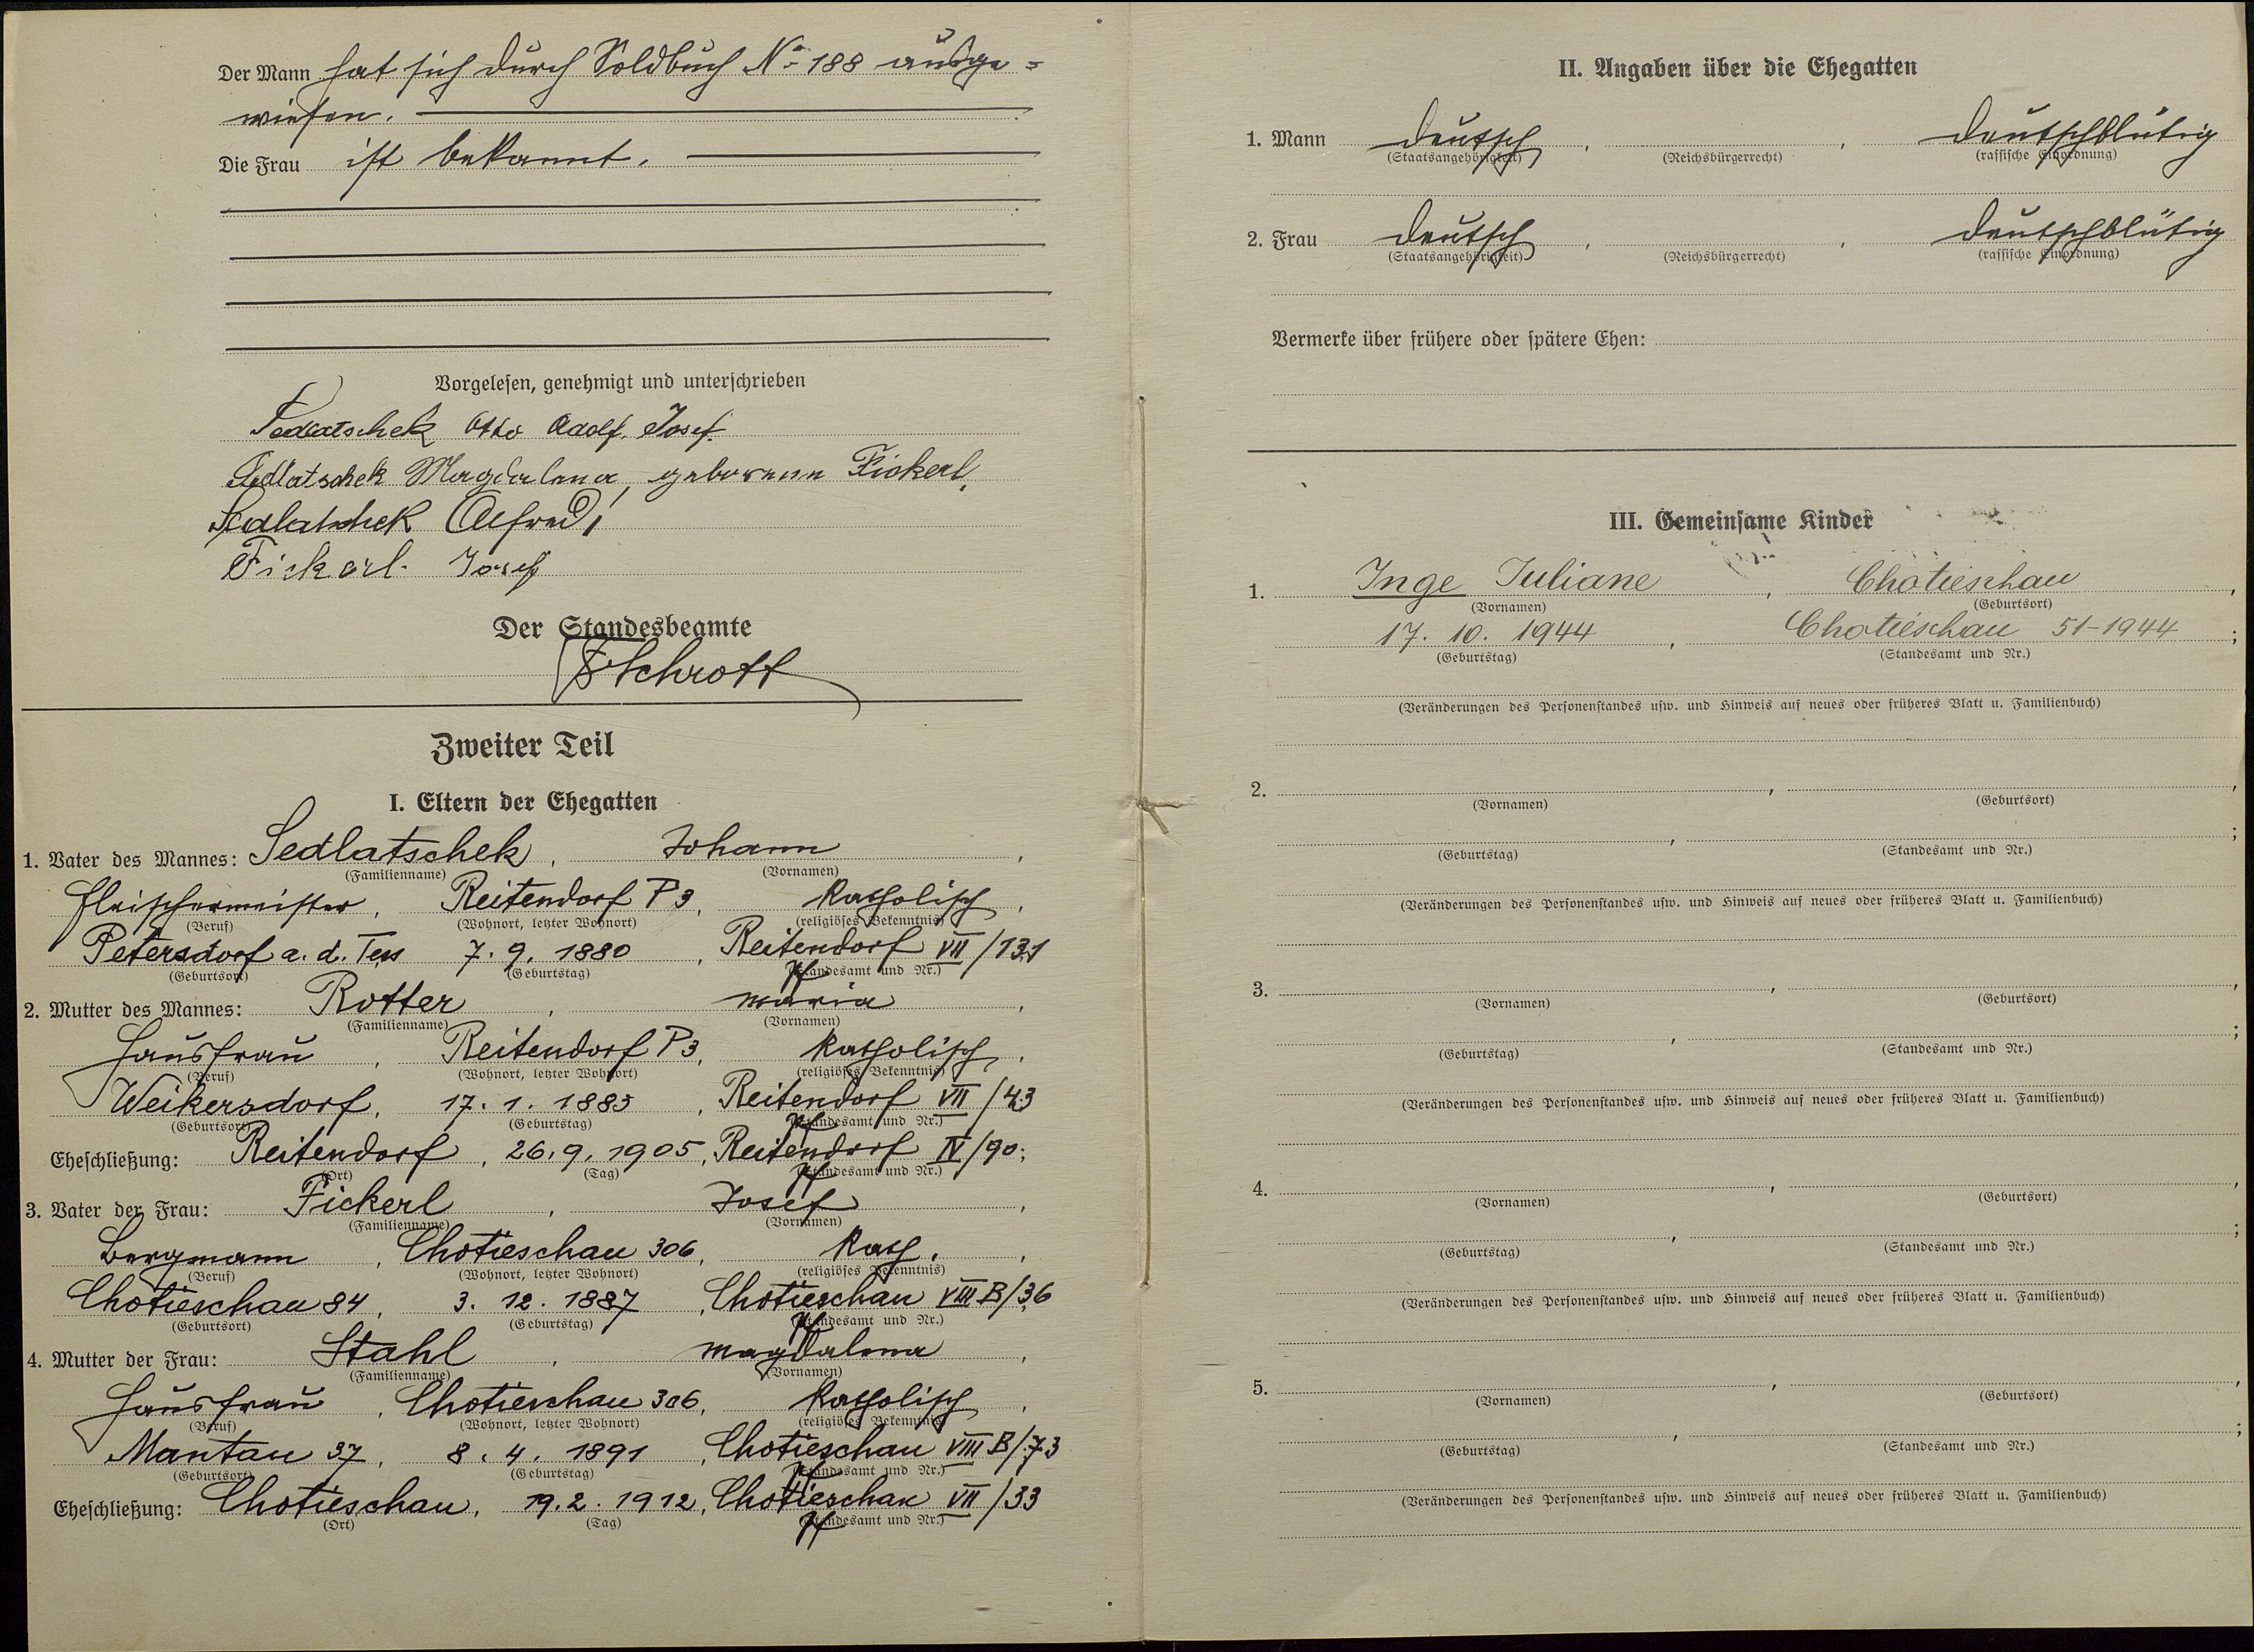 Der Mann hat sich durch Soldbuch No 188 ausge=
wiesen.
Die Frau ist bekannt.
Vorgelesen, genehmigt und unterschrieben
Sedlatschek Otto Adolf Josef.
Sedlatschek Magdalena, geborene Fickerl.
Sedlatschek Alfred
Fickerl Josef
Der Standesbeamte
Schrott
Zweiter Teil
I. Eltern der Ehegatten
1. Vater des Mannes: Sedlatschek, Johann,
(Familienname) (Vornamen)
Fleischermeister, Reitendorf P3, katholisch,
(Beruf) (Wohnort, letzter Wohnort) (religiöses Bekenntnis)
Petersdorf a. d. Tess 7. 9. 1880, Reitendorf VII/131
(Geburtsort) (Geburtstag) (Standesamt und Nr.)
2. Mutter des Mannes: Rotter, Maria,
(Familienname) (Vornamen)
Hausfrau, Reitendorf P3, katholisch,
(Beruf) (Wohnort, letzter Wohnort) (religiöses Bekenntnis)
Weikersdorf, 17. 1. 1885, Reitendorf VII/43
(Geburtsort) (Geburtstag) (Standesamt und Nr.)
Eheschließung: Reitendorf, 26. 9. 1905, Reitendorf IV/90;
(Ort) (Tag) (Standesamt und Nr.)
3. Vater der Frau: Fickerl, Josef,
(Familienname) (Vornamen)
Bergmann, Chotieschau 306, kath.,
(Beruf) (Wohnort, letzter Wohnort) (religiöses Bekenntnis)
Chotieschau 84, 3. 12. 1887, Chotieschau VIII B/36
(Geburtsort) (Geburtstag) (Standesamt und Nr.)
4. Mutter der Frau: Stahl, Magdalena,
(Familienname) (Vornamen)
Hausfrau, Chotieschau 306, katholisch,
(Beruf) (Wohnort, letzter Wohnort) (religiöses Bekenntnis)
Mantau 37, 8. 4. 1891, Chotieschau VIII B/73
(Geburtsort) (Geburtstag) (Standesamt und Nr.)
Eheschließung: Chotieschau, 19. 2. 1912, Chotieschau VII/33
(Ort) (Tag) (Standesamt und Nr.)
II. Angaben über die Ehegatten
1. Mann deutsch, , deutschblütig
(Staatsangehörigkeit) (Reichsbürgerrecht) (rassische Einordnung)
2. Frau deutsch, , deutschblütig
(Staatsangehörigkeit) (Reichsbürgerrecht) (rassische Einordnung)
Vermerke über frühere oder spätere Ehen:
III. Gemeinsame Kinder
1. Inge Juliane, Chotieschau,
(Vornamen) (Geburtsort)
17. 10. 1944, Chotieschau 51-1944;
(Geburtstag) (Standesamt und Nr.)
(Veränderungen des Personenstandes usw. und Hinweis auf neues oder früheres Blatt u. Familienbuch)
2. , ,
(Vornamen) (Geburtsort)
, ;
(Geburtstag) (Standesamt und Nr.)
(Veränderungen des Personenstandes usw. und Hinweis auf neues oder früheres Blatt u. Familienbuch)
3. , ,
(Vornamen) (Geburtsort)
, ;
(Geburtstag) (Standesamt und Nr.)
(Veränderungen des Personenstandes usw. und Hinweis auf neues oder früheres Blatt u. Familienbuch)
4. , ,
(Vornamen) (Geburtsort)
, ;
(Geburtstag) (Standesamt und Nr.)
(Veränderungen des Personenstandes usw. und Hinweis auf neues oder früheres Blatt u. Familienbuch)
5. , ,
(Vornamen) (Geburtsort)
, ;
(Geburtstag) (Standesamt und Nr.)
(Veränderungen des Personenstandes usw. und Hinweis auf neues oder früheres Blatt u. Familienbuch)